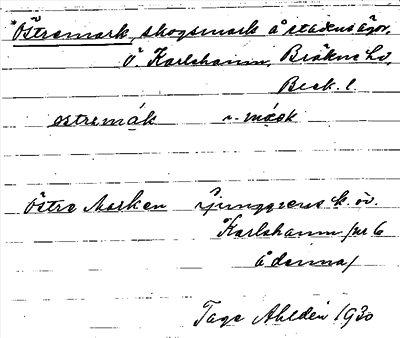 *Östremark, skogsmark å stadens ägor,
Ö. Karlshamn, Bräkne hd,
Blek. l.
östremák    i. mask
Östre Marken    Ljunggrens k. öv.
Karlshamn /nr 6
å denna/
Tage Ahldén 1930